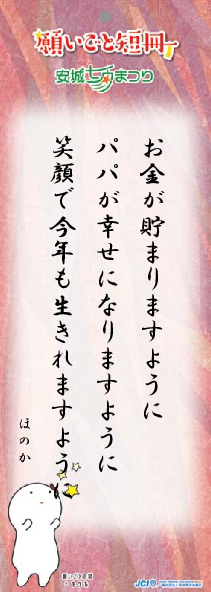 願いごと短冊
安城七夕まつり
お金が貯まりますように
パパが幸せになりますように
笑顔で今年も生きれますように
ほのか
JCI